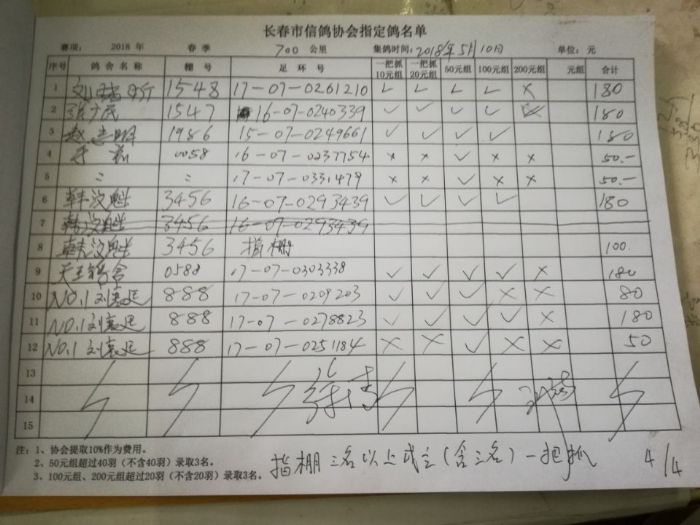 长春市信鸽协会指定鸽名单
赛项： 2018 年 春季 700 公里 集鸽时间：2018年5月10日 单位：元
序号 鸽会名称 棚号 足环号 一把抓10元组 一把抓20元组 50元组 100元组 200元组 元组 合计
1 1548 17-07-0261210 ✓ ✓ ✓ ✓ × 180
2 1547 16-07-0240339 ✓ ✓ ✓ ✓ 180
3 1986 15-07-0249661 ✓ ✓ ✓ ✓ 180
4 0058 16-07-0237754 × × ✓ × × 50.-
5 17-07-0331479 × × ✓ × × 50.-
6 韩汉魁 3456 16-07-0293439 ✓ ✓ ✓ ✓ 180
7 韩汉魁 3456 16-07-0293439
8 韩汉魁 3456 指棚 100
9 0588 17-07-0303338 ✓ ✓ ✓ ✓ × 180
10 NO.1 888 17-07-0209203 ✓ ✓ ✓ × × 80
11 NO.1 888 17-07-0278823 ✓ ✓ ✓ ✓ × 180
12 NO.1 888 17-07-0251184 × × ✓ × × 50
13
14
15
注：1、协会提取10%作为费用。
2、50元组超过40羽（不含40羽）录取3名。
3、100元组、200元组超过20羽（不含20羽）录取3名。
指棚 三名以上成立(含三名)一把抓 4/4